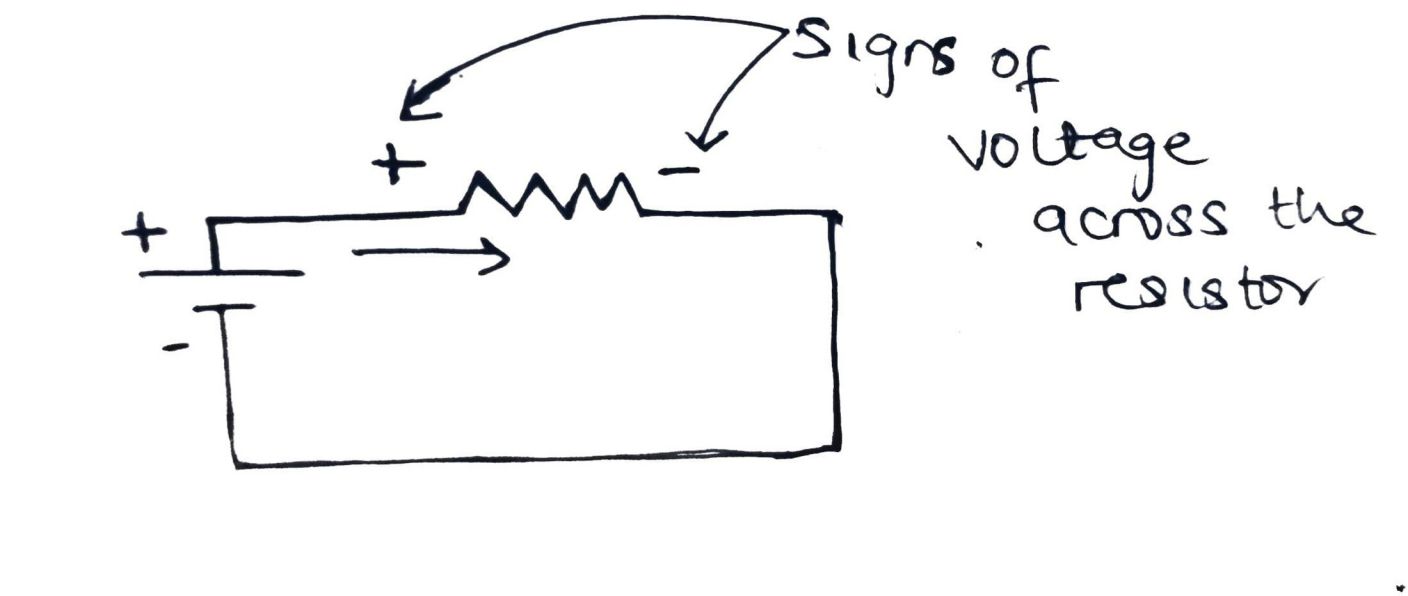 Signs of
voltage
across the
resistor
+
-
+
-